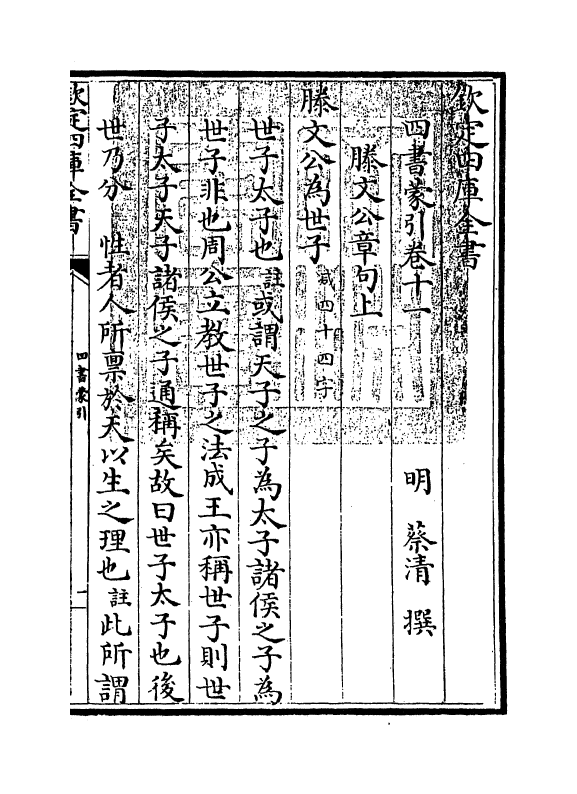 欽定四庫全書
四書蒙引卷十一
明 蔡清 撰
滕文公章句上
滕文公為世子 減四十四字
世子太子也註或謂天子之子為太子諸侯之子為
世子非也周公立教世子之法成王亦稱世子則世
子太子天子諸侯之子通稱矣故曰世子太子也後
世乃分 性者人所禀於天以生之理也註此所謂
欽定四庫全書
四書蒙引
一